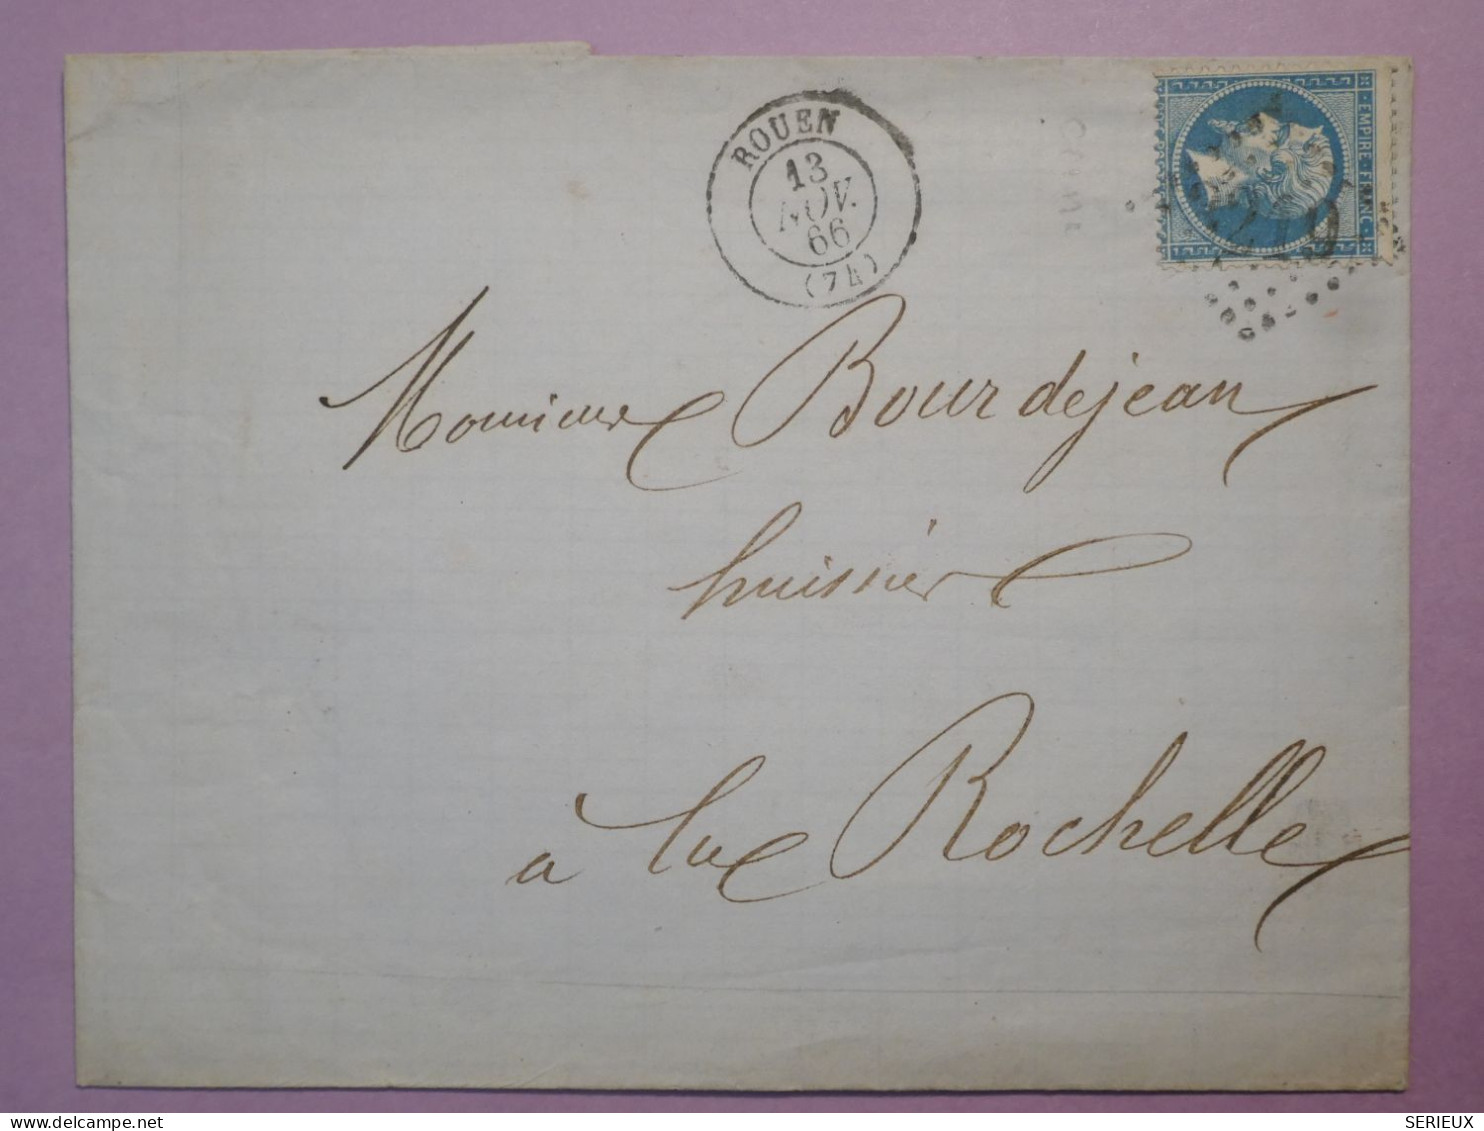 ROUEN
13
NOV.
66
(74)
EMPIRE FRANC
Monsieur Bourdejean
huissier
à la Rochelle
DELCAMPE
SERIEUX